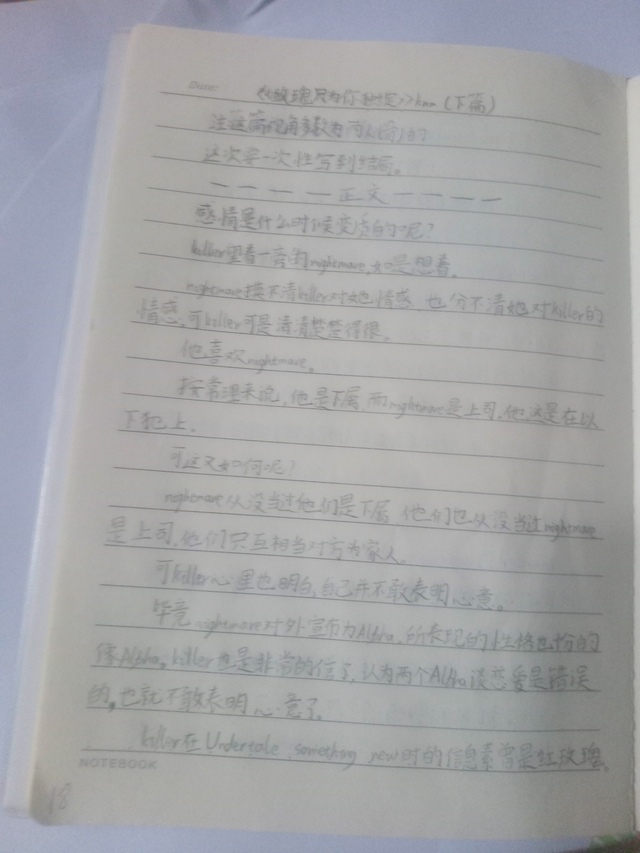 Date:
《玫瑰只为你种植》km（下篇）
注这篇视角多数为两人(命)的
这次要一次性写到结局。
一 一 一 一 正文 一 一 一 一
感情是什么时候变质的呢？
killer望着一旁的nightmare,如是想着。
nightmare摸不清killer对她情感,也分不清她对killer的
情感,可killer可是清清楚楚得很。
他喜欢nightmare。
按常理来说,他是下属,而nightmare是上司,他这是在以
下犯上。
可这又如何呢？
nightmare从没当过他们是下属,他们也从没当过nightmare
是上司,他们只互相当对方为家人。
可killer心里也明白,自己并不敢表明心意。
毕竟nightmare对外宣布为Alpha,所表现的性格也扮的
像Alpha。killer也是非常的信了,认为两个Alpha谈恋爱是错误
的,也就不敢表明心意了。
killer在Undertale something new时的信息素曾是红玫瑰。
NOTEBOOK
18